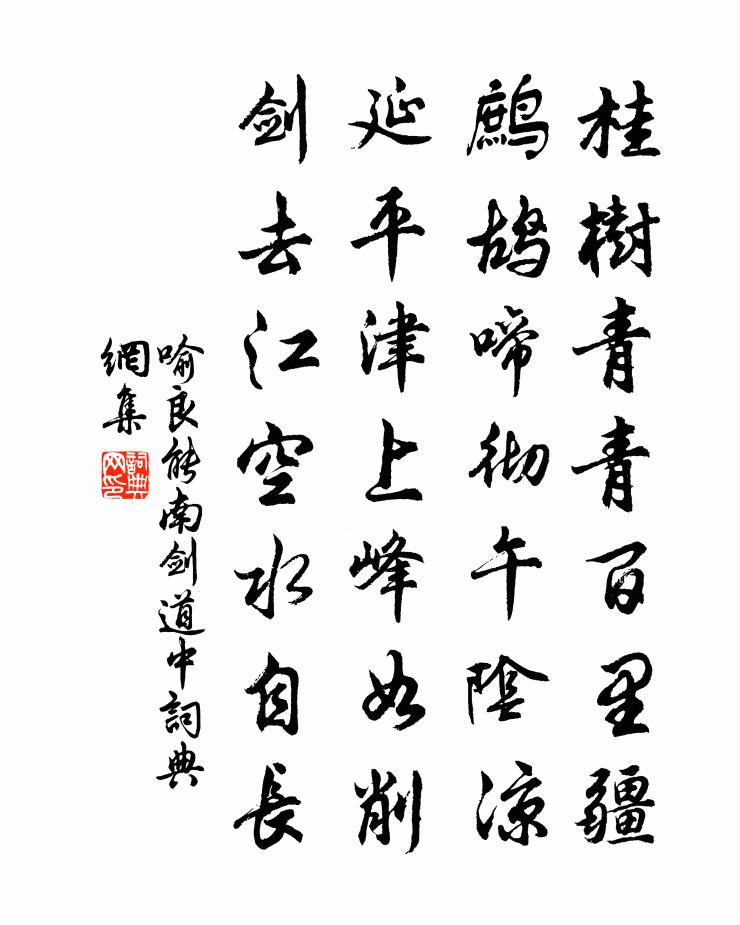 桂樹青青百里疆
鷓鴣啼彻午陰涼
延平津上峰如削
剑去江空水自長
喻良能南剑道中詞典
網集
詞典网印